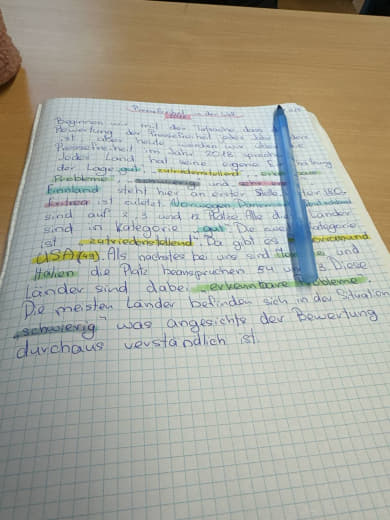 Pressefreiheit in der Welt
Beginnen wir mit der Tatsache, dass
Bewertung der Pressefreiheit jedes Jahr anders
ist, also heute werden wir über die
Pressefreiheit im Jahr 2018 sprechen.
Jedes Land hat seine eigene
der Lage: gut, zufriedenstellend,
Probleme, und
Finnland steht hier an erster Stelle, 180
ist zuletzt. Norwegen,
sind auf 2, 3 und 12 Platz. Alle die Länder
sind in Kategorie "gut". Die zweite Kategorie
ist "zufriedenstellend". Da gibt es
USA (49). Als nächstes bei uns sind und
Italien die Platz beanspruchen 54 und Diese
Länder sind dabei "erkennbare Probleme".
Die meisten Länder befinden sich in der Situation
"schwierig" was angesichts der Bewertung
durchaus verständlich ist